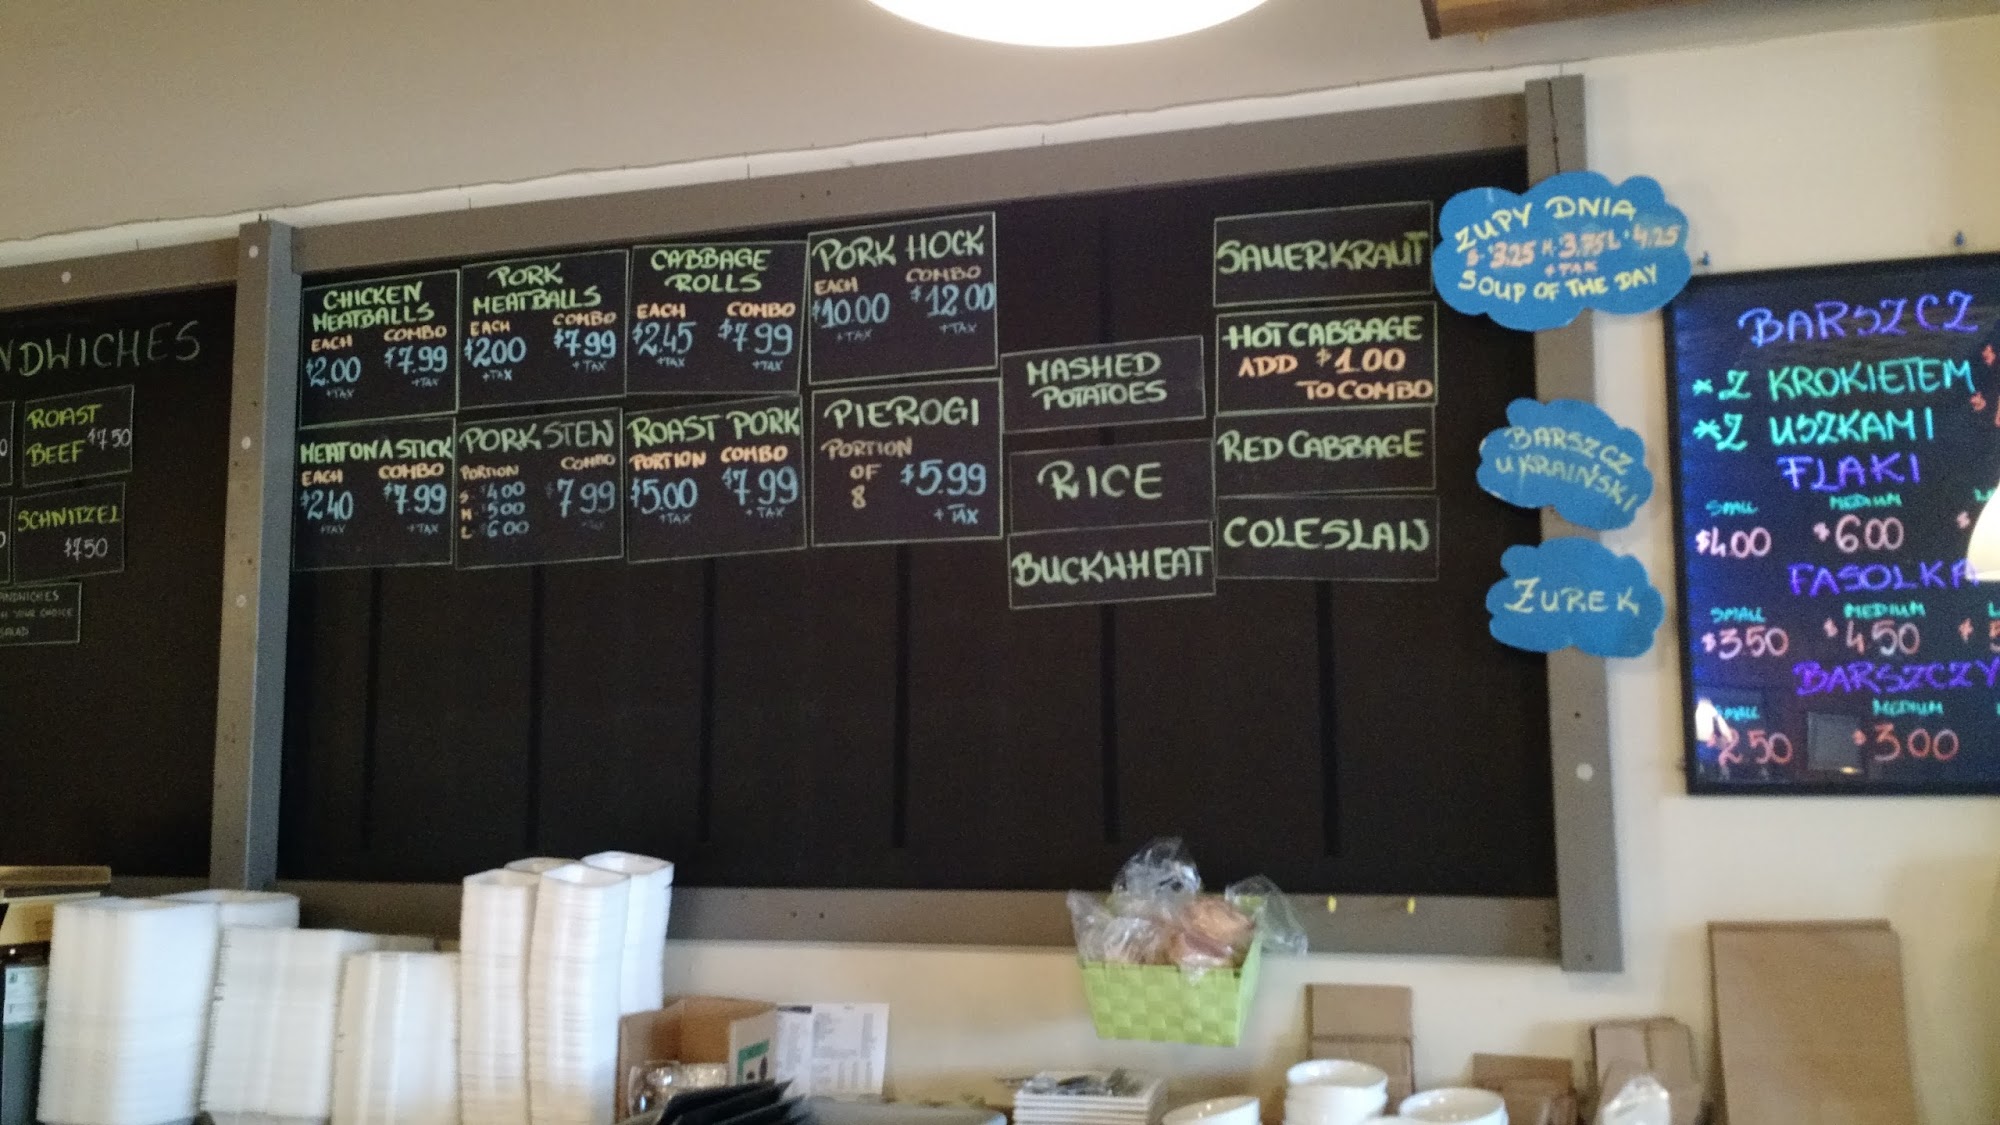 NDWICHES
ROAST
BEEF $7.50
SCHNITZEL
$7.50
YOUR CHOICE
CHICKEN
MEATBALLS
EACH COMBO
$2.00 $7.99
+TAX +TAX
PORK
MEATBALLS
EACH COMBO
$2.00 $7.99
+TAX +TAX
CABBAGE
ROLLS
EACH COMBO
$2.45 $7.99
+TAX +TAX
PORK HOCK
EACH COMBO
$10.00 $12.00
+TAX +TAX
MEAT ON A STICK
EACH COMBO
$2.40 $7.99
+TAX +TAX
PORK STEW
PORTION COMBO
S $4.00
M $5.00 $7.99
L $6.00
ROAST PORK
PORTION COMBO
$5.00 $7.99
+TAX +TAX
PIEROGI
PORTION
OF $5.99
8 +TAX
MASHED
POTATOES
RICE
BUCKWHEAT
SAUERKRAUT
HOT CABBAGE
ADD $1.00
TO COMBO
RED CABBAGE
COLESLAW
ZUPY DNIA
S 3.25 M 3.75 L 4.25
+TAX
SOUP OF THE DAY
BARSZCZ
UKRAIŃSKI
ŻUREK
BARSZCZ
*Z KROKIETEM $
*Z USZKAMI $
FLAKI
SMALL MEDIUM L
$4.00 $6.00 $
FASOLKA
SMALL MEDIUM L
$3.50 $4.50 $5
BARSZCZY
SMALL MEDIUM
$2.50 $3.00